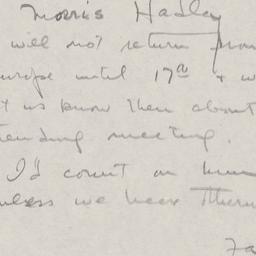 Morris Hadley
will not return from
urope until 17th + w
t us know then about
tending meeting.
I'd count on him
unless we hear